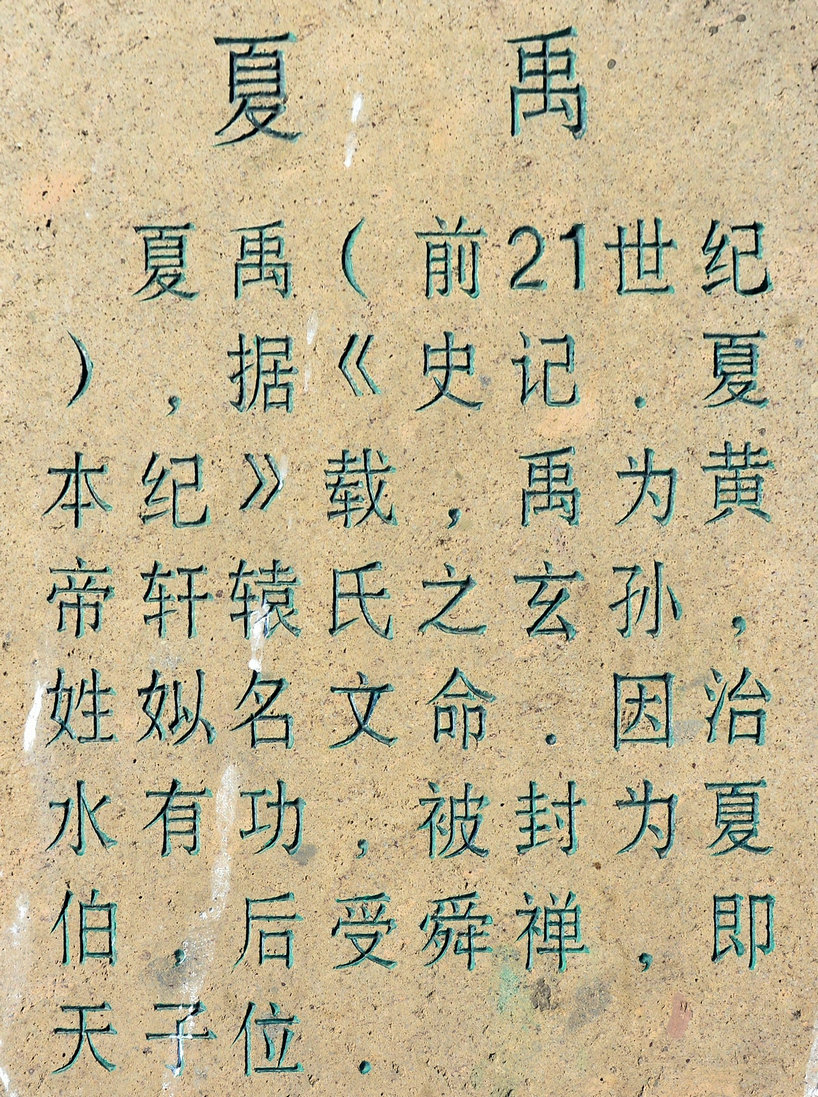 夏 禹
夏禹（前21世纪
），据《史记．夏
本纪》载，禹为黄
帝轩辕氏之玄孙，
姓姒名文命．因治
水有功，被封为夏
伯，后受舜禅，即
天子位．